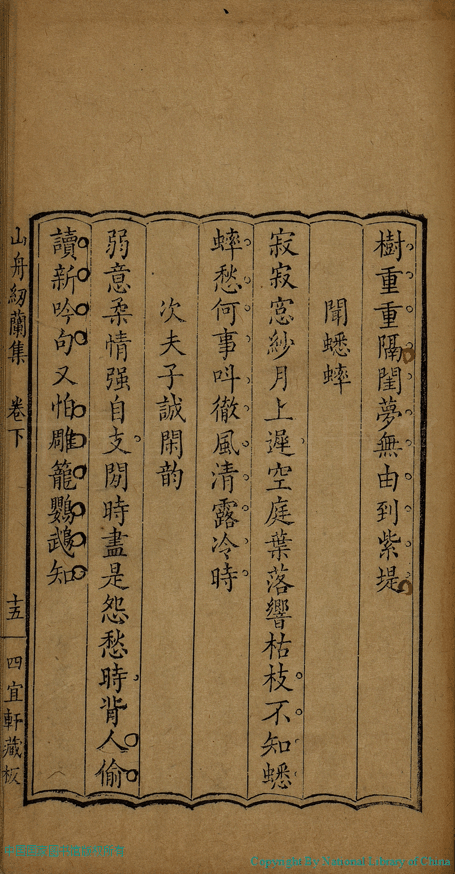 樹重重隔閨夢無由到紫堤
聞蟋蟀
寂寂窓紗月上遲空庭葉落響枯枝不知蟋
蟀愁何事呌徹風清露冷時
次夫子誠閑韵
弱意柔情强自支閱時盡是怨愁時背人偷
讀新吟句又怕雕籠鸚鵡知
山舟紉蘭集 卷下 十五 四宜軒藏板
Copyright By National Library of China